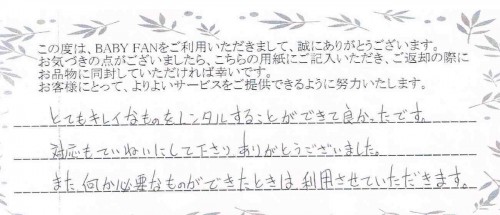 この度は、BABY FANをご利用いただきまして、誠にありがとうございます。
お気づきの点がございましたら、こちらの用紙にご記入いただき、ご返却の際に
お品物に同封していただければ幸いです。
お客様にとって、よりよいサービスをご提供できるように努力いたします。
とてもキレイなものをレンタルすることができて良かったです。
対応もていねいにして下さりありがとうございました。
また何か必要なものができたときは利用させていただきます。